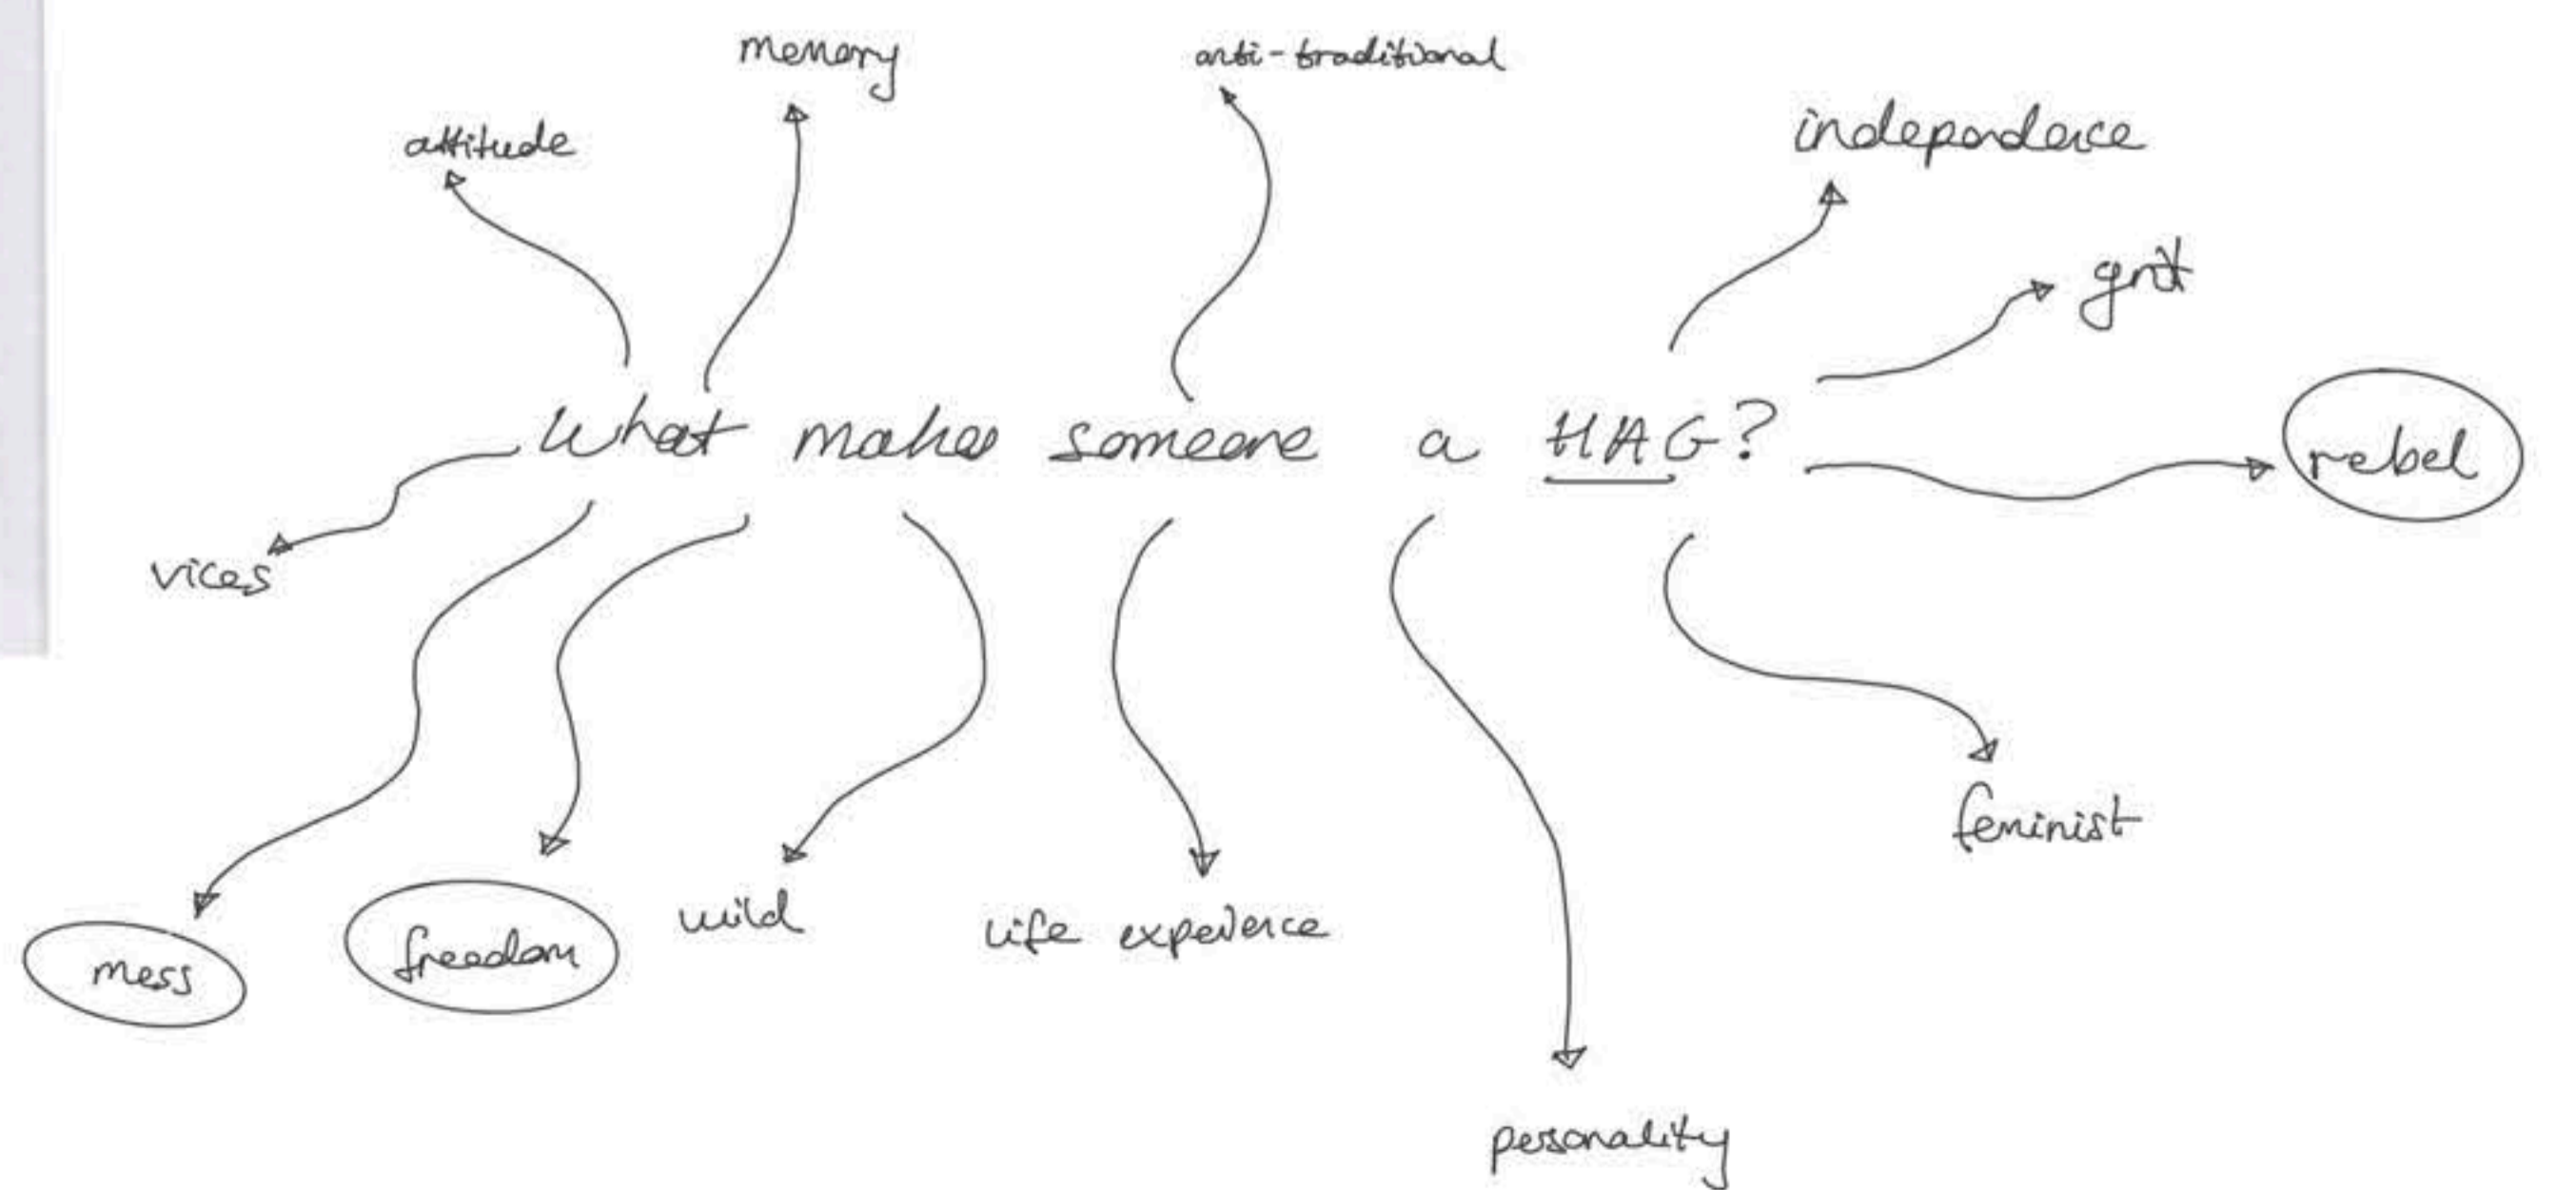 memory
anti-traditional
attitude
independence
grit
What makes someone a HAG?
rebel
vices
feminist
mess
freedom
wild
life experience
personality